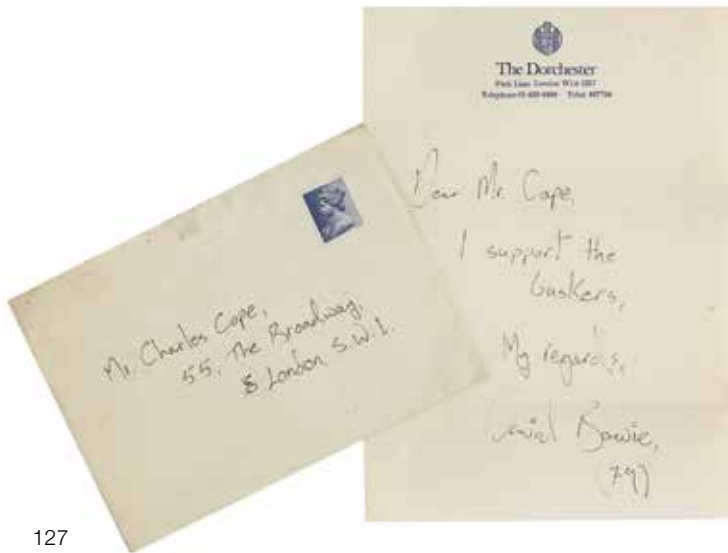 The Dorchester
Park Lane London W1A 2HJ
Telephone 01-629 8888 Telex 887704
Dear Mr. Cope,
I support the
buskers,
My regards,
David Bowie,
(79)
Mr. Charles Cope,
55, The Broadway,
London S.W.1.
127